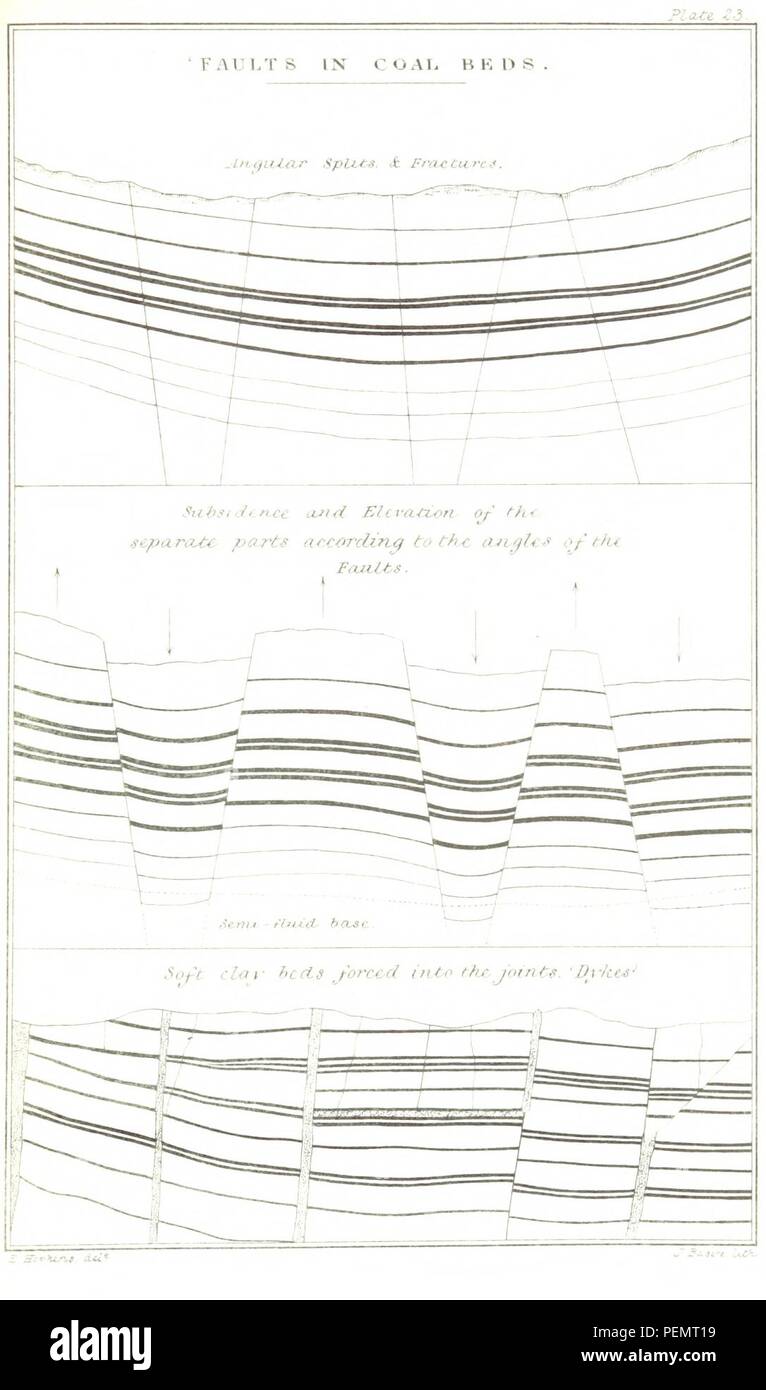 Plate 23.
'FAULTS IN COAL BEDS.
Angular Splits & Fractures.
Subsidence and Elevation of the
separate parts according to the angles of the
Faults.
Semi-fluid base.
Soft clay beds forced into the joints. 'Dykes'
E. Hopkins delt.
J. Basire lith.
alamy
Image ID: PEMT19
www.alamy.com